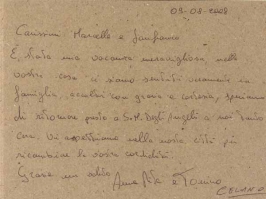 09-08-2008
Carissimi Marcello e Gianfranca
È stata una vacanza meravigliosa, nella
vostra casa ci siamo sentiti veramente in
famiglia, accolti con gioia e
di ritornare presto a S.M. degli Angeli a noi tanto
cara. Vi aspettiamo nella nostra città per
ricambiare la vostra cordialità.
Grazie un
Anna Rita e Tonino
CELANO